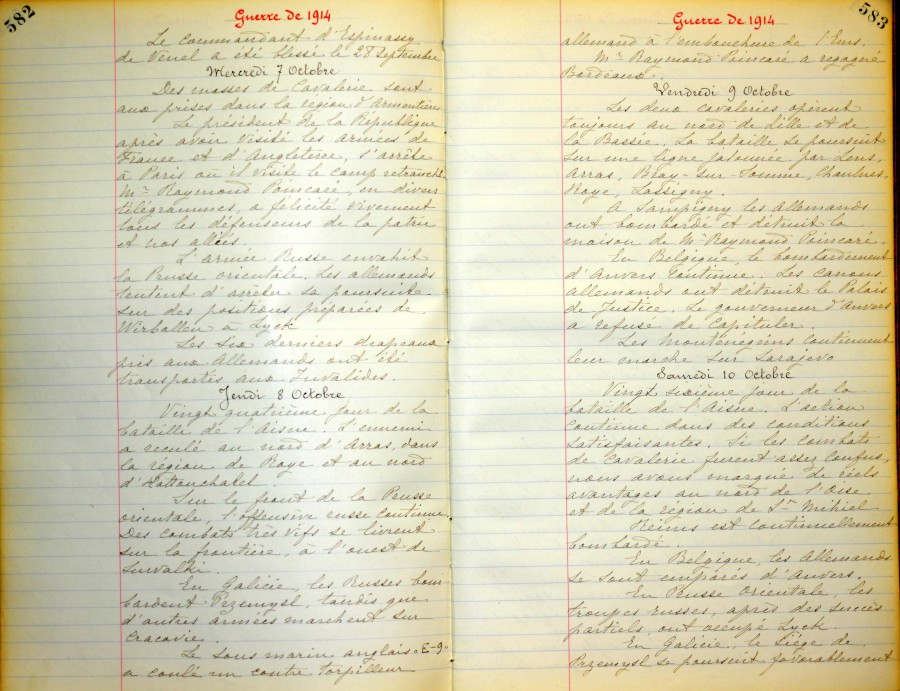 582
Guerre de 1914
Le commandant d'Espinassy
de Venel a été blessé le 28 Septembre
Mercredi 7 Octobre
Des masses de Cavalerie sont
aux prises dans la région d'Armentières
Le président de la République
après avoir visité les armées de
France et d'Angleterre, s'arrête
à Paris où il visite le camp retranché.
Mr Raymond Poincaré, en divers
télégrammes, a félicité vivement
tous les défenseurs de la patrie
et nos alliés.
L'armée Russe envahit
la Prusse orientale. Les allemands
tentent d'arrêter sa poursuite
sur des positions préparées de
Wirballen à Lyck
Les six derniers drapeaux
pris aux Allemands ont été
transportés aux Invalides.
Jeudi 8 Octobre
Vingt quatrième jour de la
bataille de l'Aisne. L'ennemi
a reculé au nord d'Arras, dans
la région de Roye et au nord
d'Hattonchatel.
Sur le front de la Prusse
orientale, l'offensive russe continue.
Des combats très vifs se livrent
sur la frontière, à l'ouest de
Suvalki.
En Galicie, les Russes bom-
bardent Przemysl, tandis que
d'autres armées marchent sur
Cracovie.
Le sous marin anglais "E-9"
a coulé un contre torpilleur
583
Guerre de 1914
allemand à l'embouchure de l'Ems.
Mr Raymond Poincaré a regagné
Bordeaux.
Vendredi 9 Octobre
Les deux cavaleries opèrent
toujours au nord de Lille et de
la Bassée. La bataille se poursuit
sur une ligne jalonnée par Lens,
Arras, Bray-sur-Somme, Chaulnes,
Roye, Lassigny.
A Sampigny les Allemands
ont bombardé et détruit la
maison de Mr Raymond Poincaré.
En Belgique, le bombardement
d'Anvers continue. Les canons
allemands ont détruit le Palais
de Justice. Le gouverneur d'Anvers
a refusé de capituler.
Les Monténégrins continuent
leur marche sur Sarajevo
Samedi 10 Octobre
Vingt sixième jour de la
bataille de l'Aisne. L'action
continue dans des conditions
satisfaisantes. Si les combats
de Cavalerie furent assez confus,
nous avons marqué de réels
avantages au nord de l'Oise
et de la région de St Mihiel
Reims est continuellement
bombardé.
En Belgique, les Allemands
se sont emparés d'Anvers.
En Prusse Orientale, les
troupes russes, après des succès
partiels, ont occupé Lyck.
En Galicie, le siège de
Przemysl se poursuit favorablement